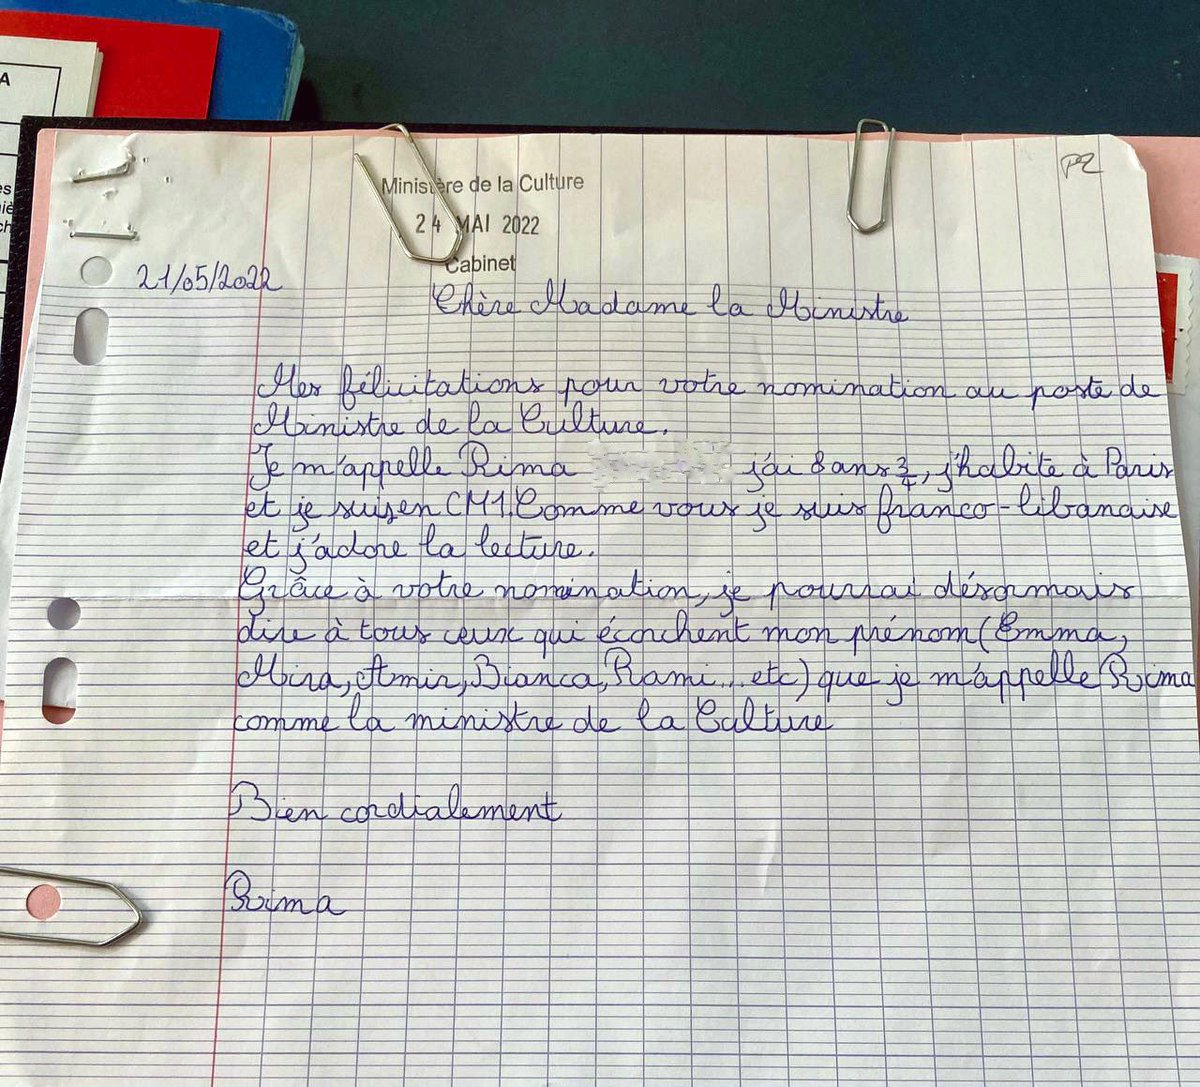 A
es
iè
ch
PZ
Ministère de la Culture
24 MAI 2022
Cabinet
21/05/2022
Chère Madame la Ministre
Mes félicitations pour votre nomination au poste de
Ministre de la Culture.
Je m'appelle Rima j'ai 8 ans 3/4, j'habite à Paris
et je suis en CM1. Comme vous je suis franco-libanaise
et j'adore la lecture.
Grâce à votre nomination, je pourrai désormais
dire à tous ceux qui écorchent mon prénom (Emma,
Mira, Amir, Bianca, Rami... etc) que je m'appelle Rima
comme la ministre de la Culture
Bien cordialement
Rima